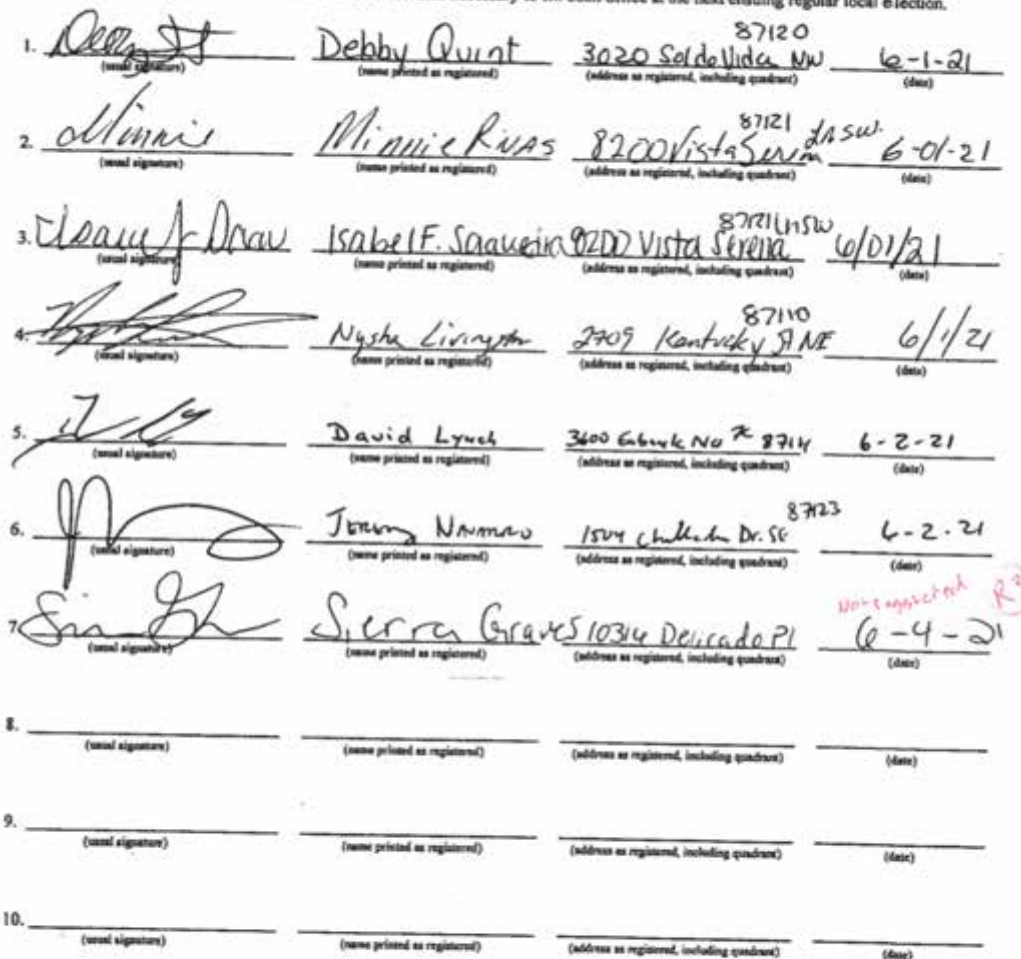 at the next ensuing regular local election.
87120
1. Debby Quint 3020 Sol de Vida NW 6-1-21
(usual signature) (name printed as registered) (address as registered, including quadrant) (date)
87121
2. Minnie Minnie Rivas 8200 Vista Serena Ln SW. 6-01-21
(usual signature) (name printed as registered) (address as registered, including quadrant) (date)
87121 Ln SW
3. Isabel F. 8200 Vista Serena 6/01/21
(usual signature) (name printed as registered) (address as registered, including quadrant) (date)
87110
4. Nysha Livingston 2709 Kentucky St NE 6/1/21
(usual signature) (name printed as registered) (address as registered, including quadrant) (date)
5. David Lynch 3600 6-2-21
(usual signature) (name printed as registered) (address as registered, including quadrant) (date)
87123
6. Jeremy Navarro 1504 Dr. SE 6-2-21
(usual signature) (name printed as registered) (address as registered, including quadrant) (date)
Not registered
7. Sierra Graves 10314 Delicado Pl 6-4-21
(usual signature) (name printed as registered) (address as registered, including quadrant) (date)
8.
(usual signature) (name printed as registered) (address as registered, including quadrant) (date)
9.
(usual signature) (name printed as registered) (address as registered, including quadrant) (date)
10.
(usual signature) (name printed as registered) (address as registered, including quadrant) (date)